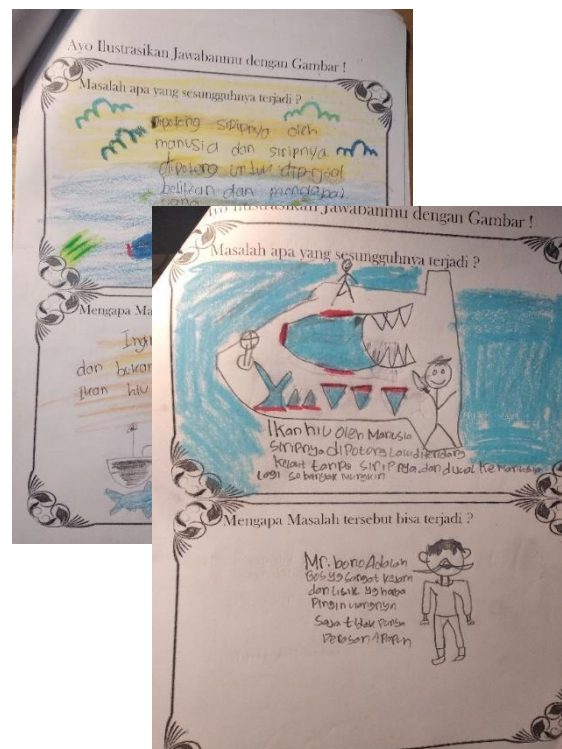 Ayo Ilustrasikan Jawabanmu dengan Gambar !
Masalah apa yang sesungguhnya terjadi ?
Dipotong siripnya oleh
manusia dan siripnya
dipotong untuk diperjual
belikan dan mendapat
Mengapa Ma
Ingi
dan bukan
ikan hiu
Ayo Ilustrasikan Jawabanmu dengan Gambar !
Masalah apa yang sesungguhnya terjadi ?
Ikan hiu oleh Manusia
siripnya dipotong lalu ditendang
kelaut tanpa siripnya, dan dijual ke Manusia
lagi sebanyak mungkin
Mengapa Masalah tersebut bisa terjadi ?
Mr. bono Adalah
Bos yg sangat kejam
dan licik yg hanya
Pingin uangnya
saja tidak punya
Perasaan APapun